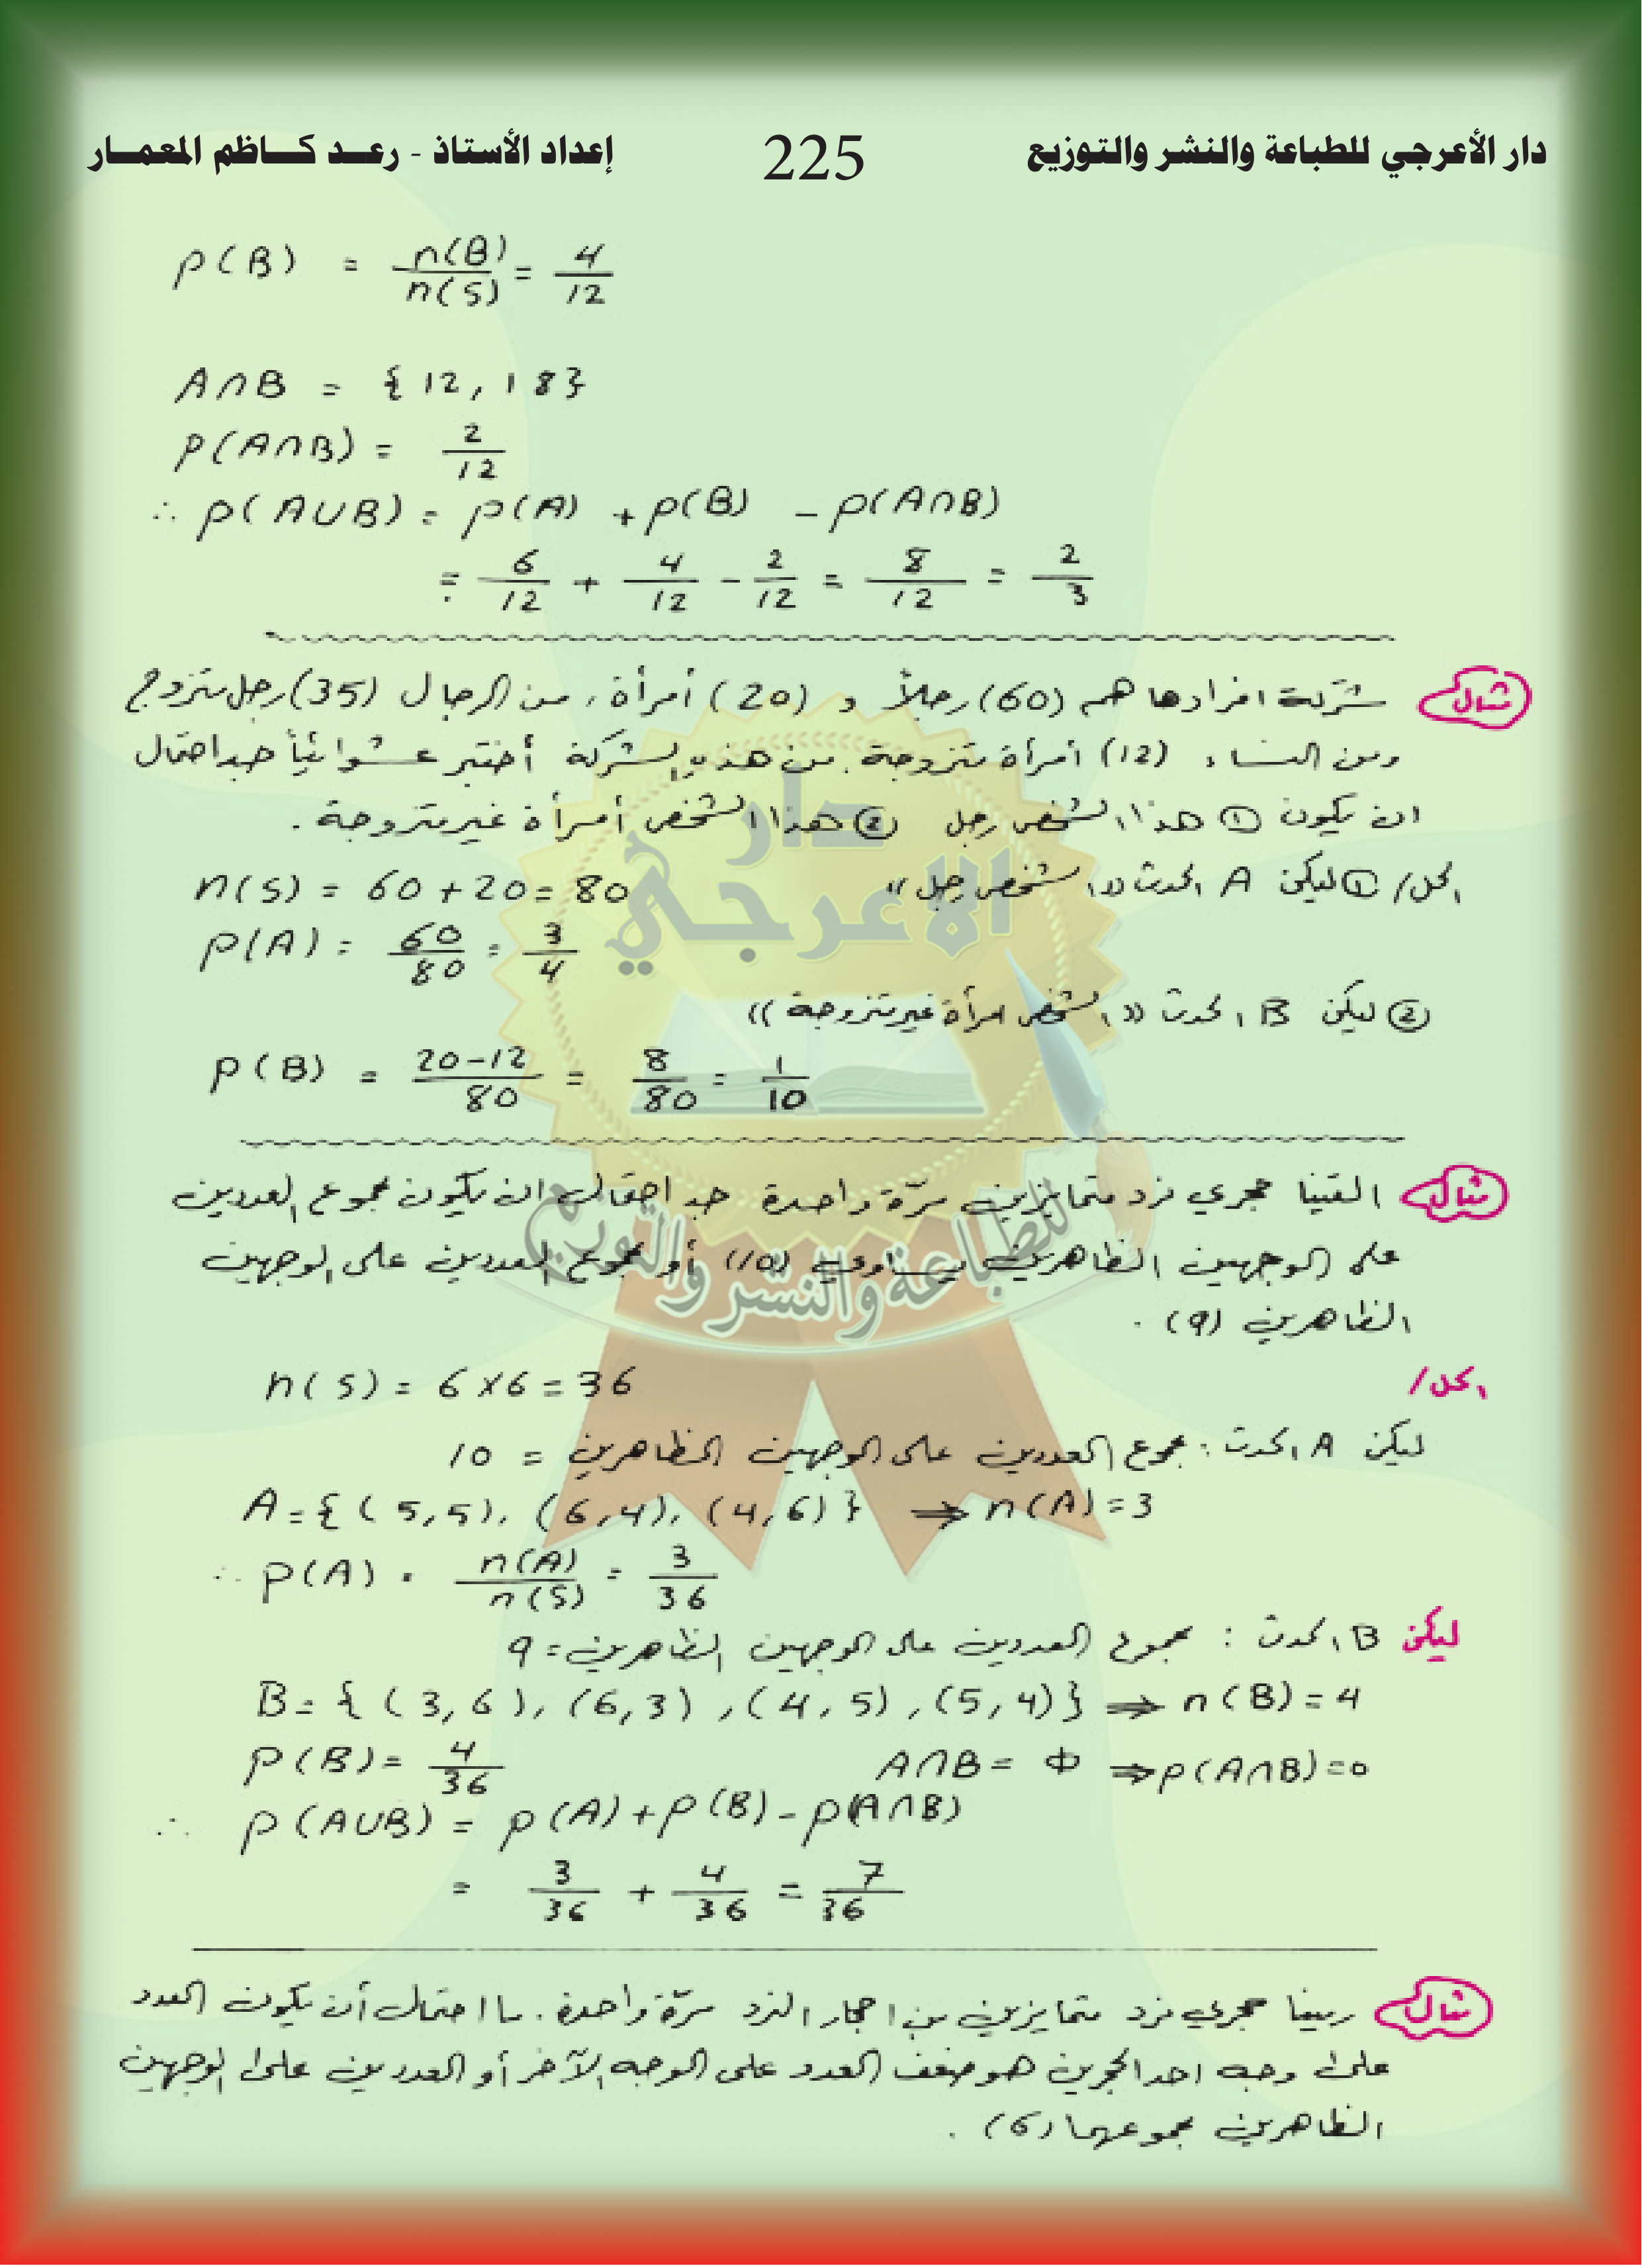 دار الأعرجي للطباعة والنشر والتوزيع 225 إعداد الأستاذ - رعد كاظم المعمار
p(B) = n(B)/n(S) = 4/12
A∩B = {12, 18}
p(A∩B) = 2/12
∴ p(A∪B) = p(A) + p(B) - p(A∩B)
= 6/12 + 4/12 - 2/12 = 8/12 = 2/3
مثال شركة افرادها هم (60) رجلاً و (20) أمرأة، من الرجال (35) رجل متزوج
ومن النساء (12) أمرأة متزوجة. من هذه الشركة أختير عشوائياً جد احتمال
ان يكون ① هذا الشخص رجل ② هذا الشخص أمرأة غير متزوجة.
الحل/ ① ليكن A الحدث «الشخص رجل» n(S) = 60 + 20 = 80
p(A) = 60/80 = 3/4
② ليكن B الحدث «الشخص امرأة غير متزوجة»
p(B) = 20-12/80 = 8/80 = 1/10
مثال القينا حجري نرد متمايزين مرّة واحدة جد احتمال ان يكون مجموع العددين
على الوجهين الظاهرين يساوي (10) أو مجموع العددين على الوجهين
الظاهرين (9).
الحل/ n(S) = 6×6 = 36
ليكن A الحدث: مجموع العددين على الوجهين الظاهرين = 10
A = {(5,5), (6,4), (4,6)} ⇒ n(A) = 3
∴ p(A) = n(A)/n(S) = 3/36
ليكن B الحدث : مجموع العددين على الوجهين الظاهرين = 9
B = {(3,6), (6,3), (4,5), (5,4)} ⇒ n(B) = 4
p(B) = 4/36 A∩B = Φ ⇒ p(A∩B) = 0
∴ p(A∪B) = p(A) + p(B) - p(A∩B)
= 3/36 + 4/36 = 7/36
مثال رمينا حجري نرد متمايزين من احجار النرد مرّة واحدة. ما احتمال أن يكون العدد
على وجه احد الحجرين هو ضعف العدد على الوجه الآخر أو العددين على الوجهين
الظاهرين مجموعهما (6).
دار
الاعرجي
للطباعة والنشر والتوزيع